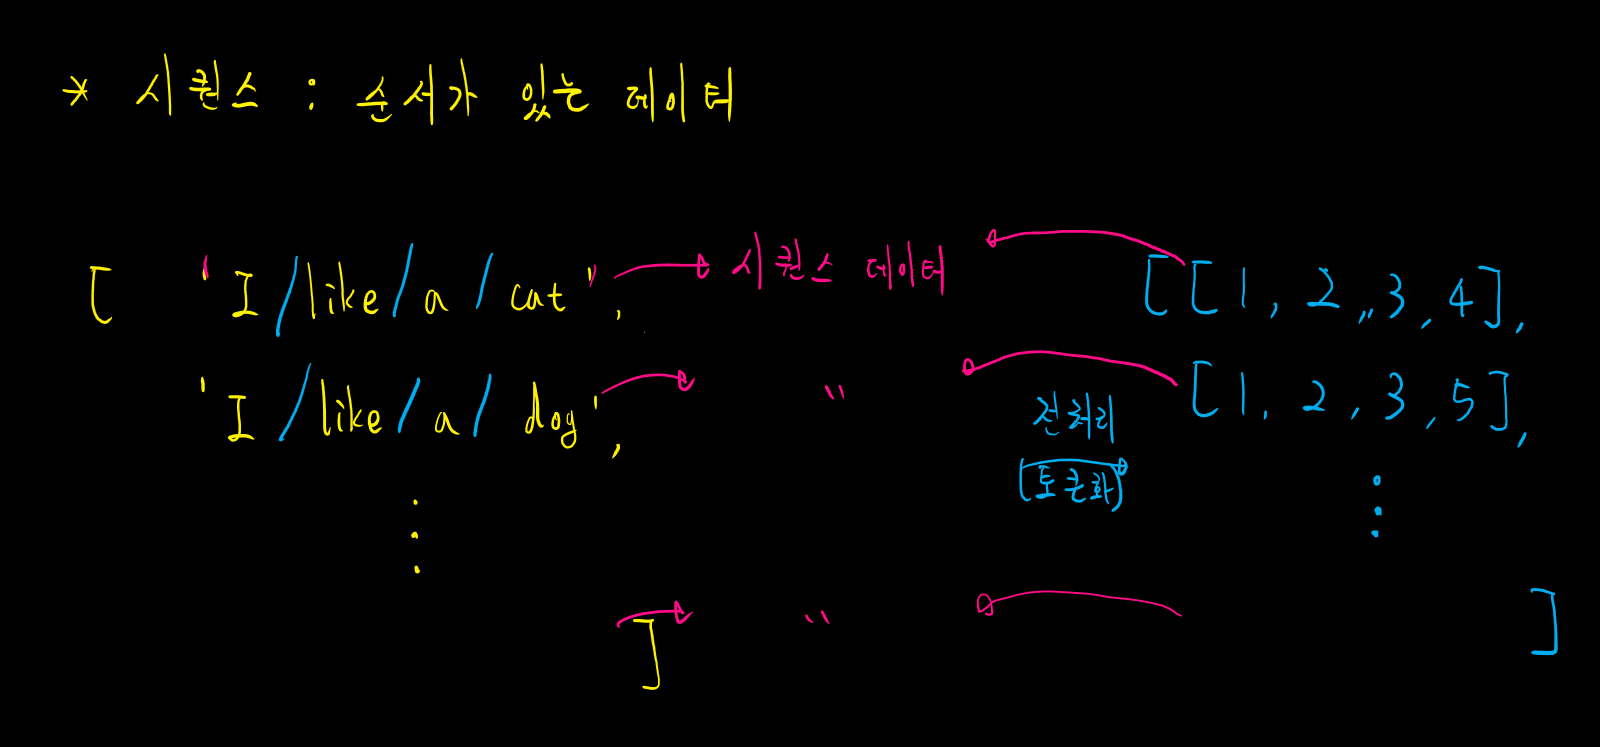 * 시퀀스 : 순서가 있는 데이터
[ "I/like/a/cat", 시퀀스 데이터 [[1, 2,,3,4],
'I/like/a/dog', " [1,2,3,5],
전처리
(토큰화)
⋮ ⋮
] " ]